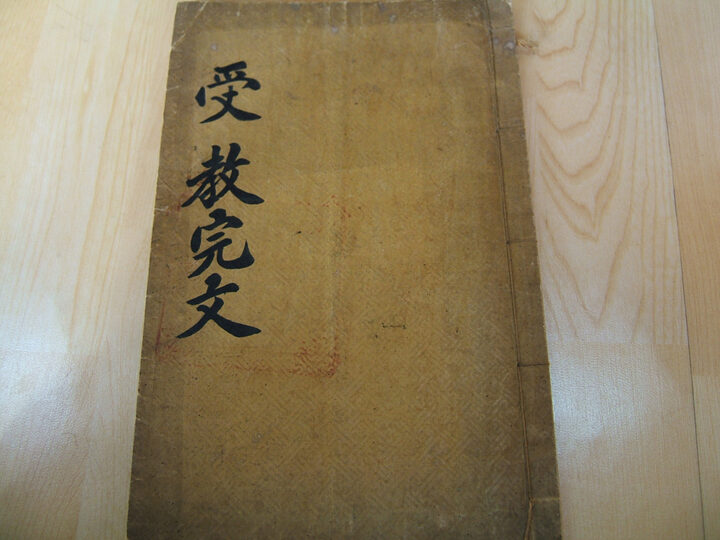 受教完文